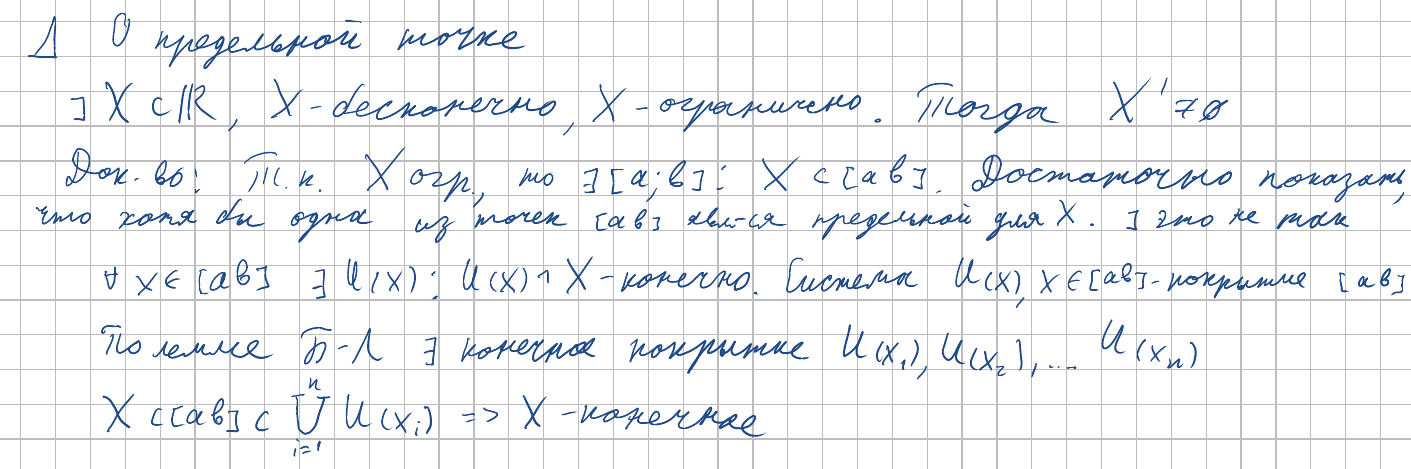 Л О предельной точке
∃ X ⊂ ℝ, X - бесконечно, X - ограничено. Тогда X' ≠ ∅
Док-во: Т.к. X огр., то ∃ [a;b]: X ⊂ [ab]. Достаточно показать,
что хотя бы одна из точек [ab] явл-ся предельной для X. ∃ это не так
∀ x ∈ [ab] ∃ U(x): U(x) ∩ X - конечно. Система U(x), x ∈ [ab] - покрытие [ab]
По лемме Б-Л ∃ конечное покрытие U(x₁), U(x₂), ... U(xₙ)
X ⊂ [ab] ⊂ ⋃ᵢ₌₁ⁿ U(xᵢ) => X - конечное